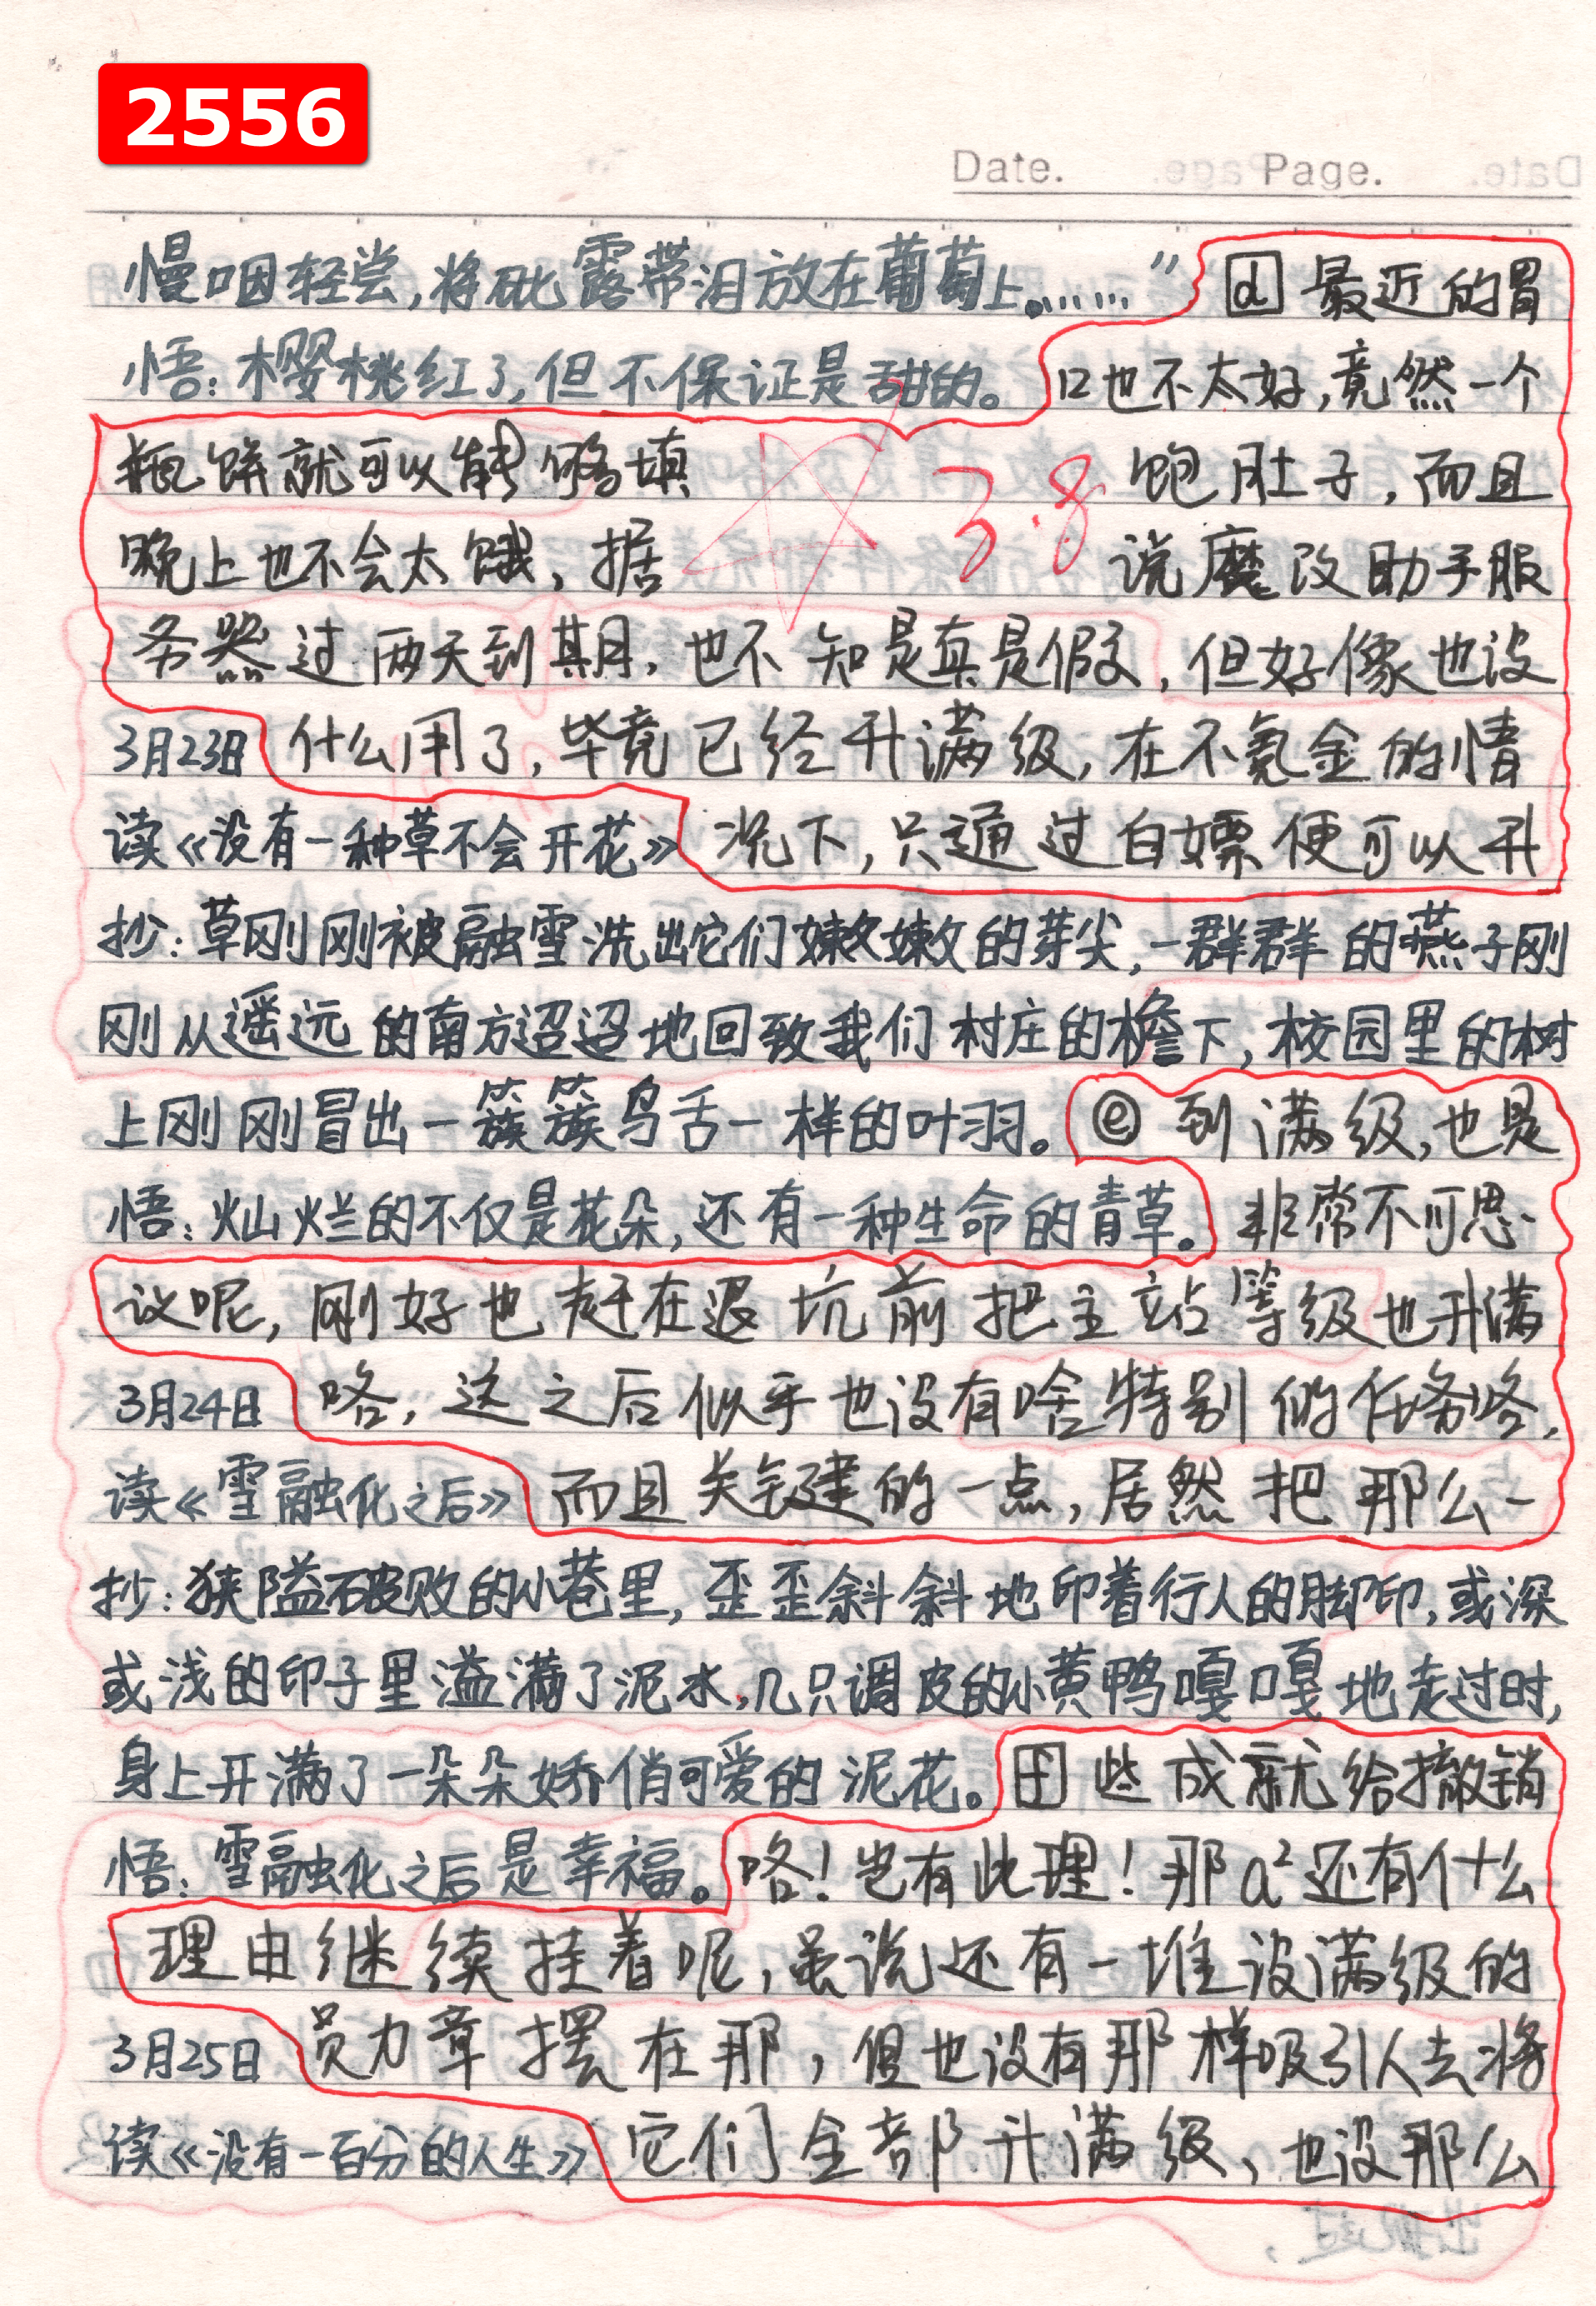 2556
Date.
Page.
慢咽轻尝,将砒露带泪放在葡萄上。……”
d 最近的胃
悟:樱桃红了,但不保证是甜的。
口也不太好,竟然一个
瓶饼就可以能够填
3.8
饱肚子,而且
晚上也不会太饿,据
说魔改助手服
务器过两天到期,也不知是真是假,但好像也没
3月23日
什么用了,毕竟已经升满级,在不氪金的情
读《没有一种草不会开花》
况下,只通过白嫖便可以升
抄:草刚刚被融雪洗出它们嫩嫩的芽尖,一群群的燕子刚
刚从遥远的南方迢迢地回致我们村庄的檐下,校园里的树
上刚刚冒出一簇簇鸟舌一样的叶羽。
e 到满级,也是
悟:灿烂的不仅是花朵,还有一种生命的青草。
非常不可思
议呢,刚好也赶在退坑前把主站等级也升满
3月24日
咯,这之后似乎也没有啥特别的任务咯,
读《雪融化之后》
而且关键的一点,居然把那么一
抄:狭隘破败的小巷里,歪歪斜斜地印着行人的脚印,或深
或浅的印子里溢满了泥水,几只调皮的小黄鸭嘎嘎地走过时,
身上开满了一朵朵娇俏可爱的泥花。
些成就给撤销
悟:雪融化之后是幸福。
咯!岂有此理!那a²还有什么
理由继续挂着呢,虽说还有一堆没满级的
3月25日
员力章摆在那,但也没有那样吸引人去将
读《没有一百分的人生》
它们全部升满级、也没那么